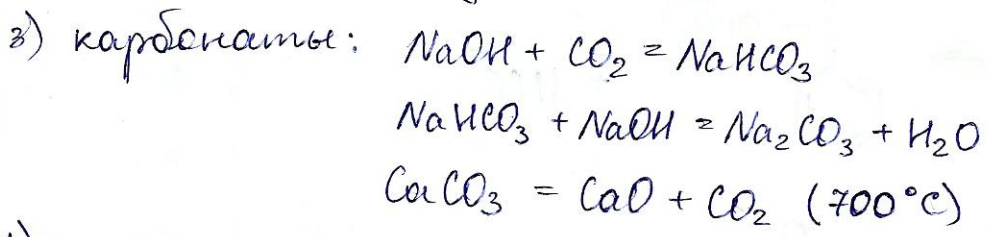 з) карбонаты: NaOH + CO₂ = NaHCO₃
NaHCO₃ + NaOH = Na₂CO₃ + H₂O
CaCO₃ = CaO + CO₂ (700°C)